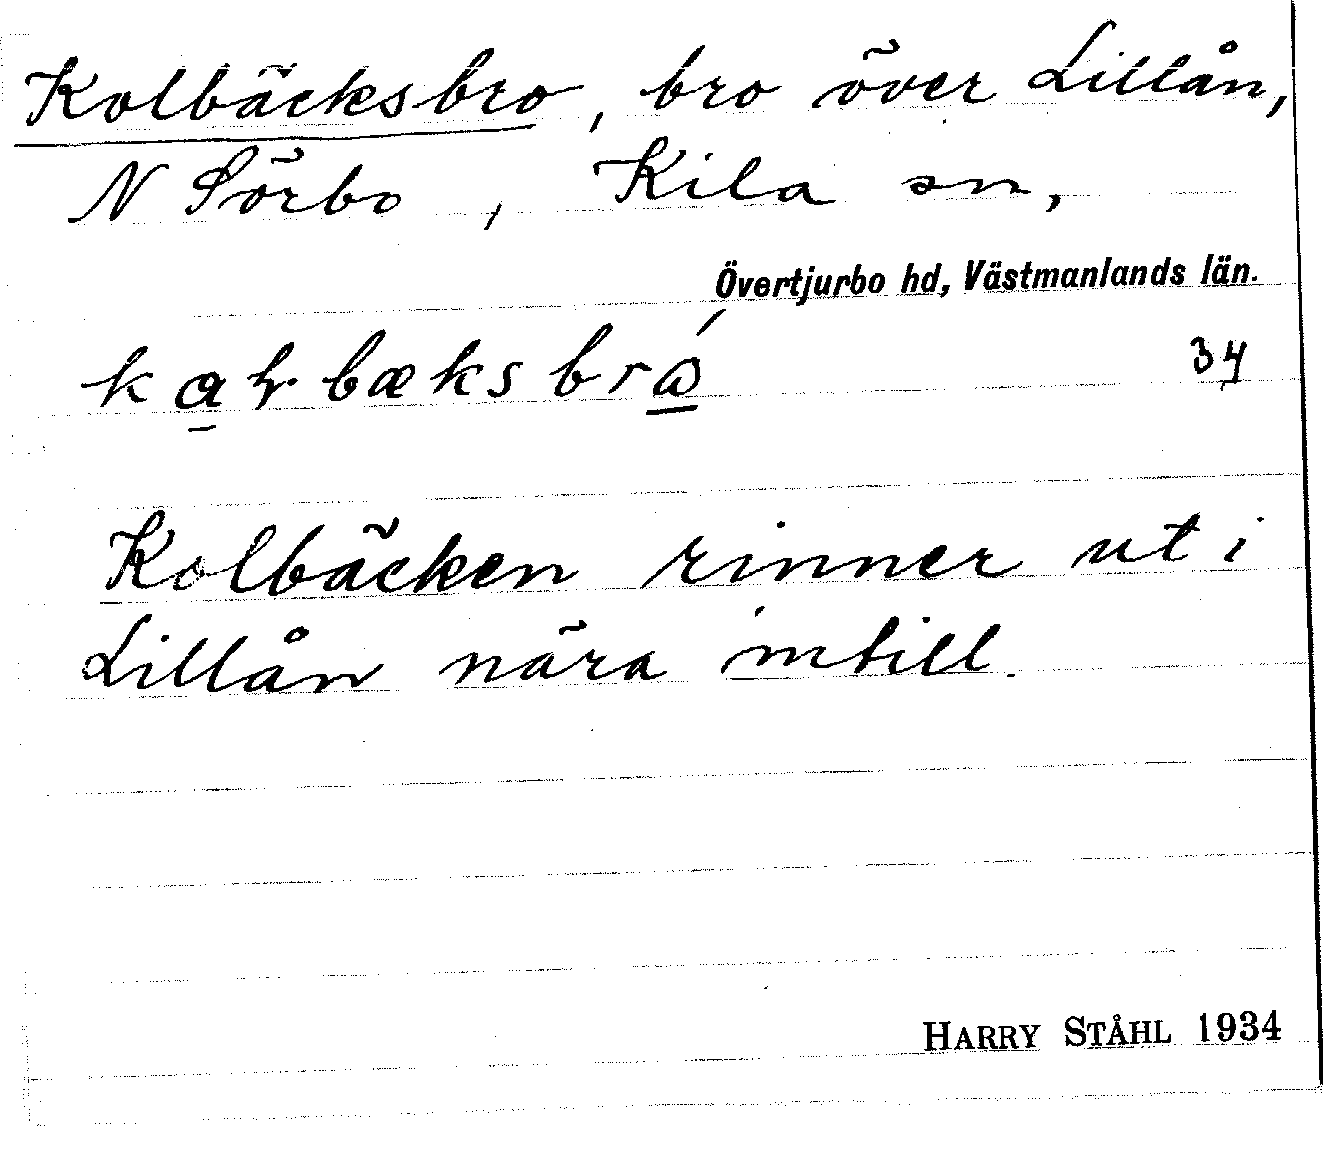 Kolbäcksbro, bro över Lillån,
N Sörbo, Kila sn,
Övertjurbo hd, Västmanlands län.
34
Kolbäcken rinner ut i
Lillån nära intill.
HARRY STÅHL 1934